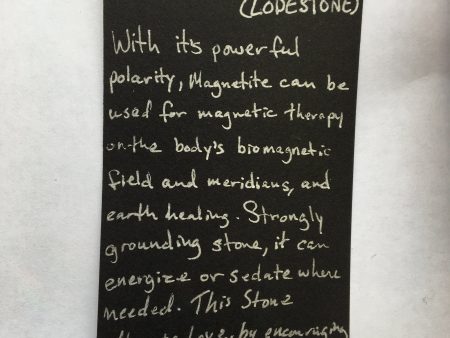 (LODESTONE)
With it's powerful
polarity, Magnetite can be
used for magnetic therapy
on the body's biomagnetic
field and meridians, and
earth healing. Strongly
grounding stone, it can
energize or sedate where
needed. This Stone
Love, by encouraging